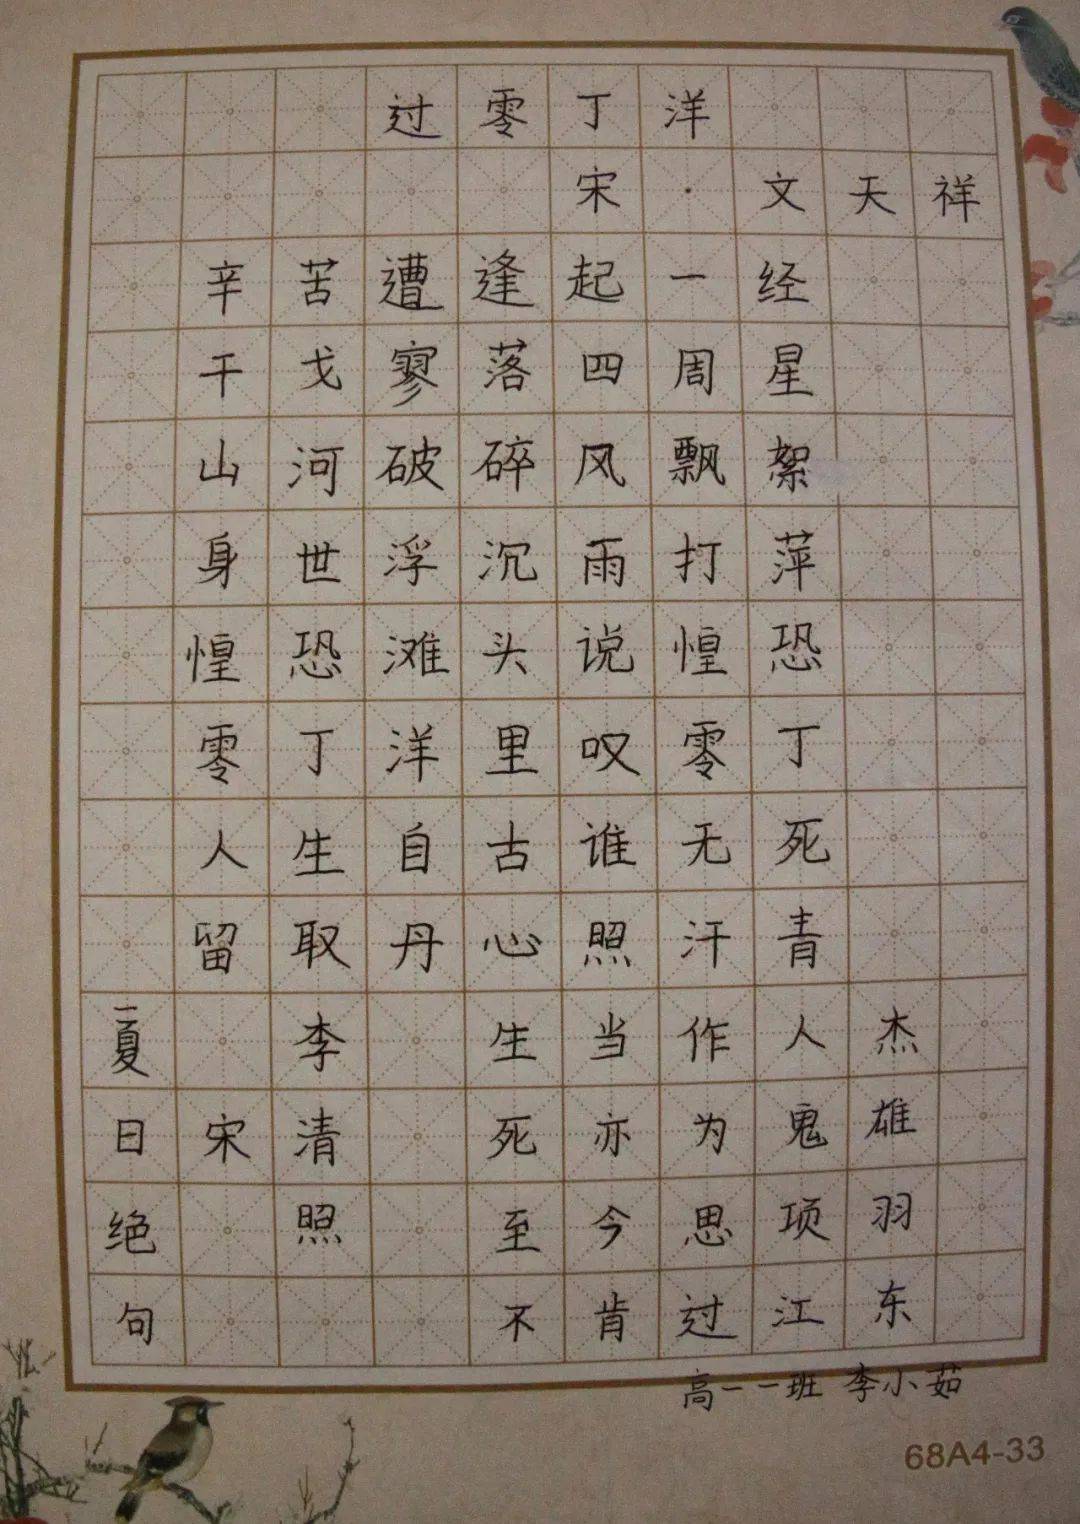 过零丁洋
宋·文天祥
辛苦遭逢起一经
干戈寥落四周星
山河破碎风飘絮
身世浮沉雨打萍
惶恐滩头说惶恐
零丁洋里叹零丁
人生自古谁无死
留取丹心照汗青
夏日绝句
宋
李清照
生当作人杰
死亦为鬼雄
至今思项羽
不肯过江东
高一一班 李小茹
68A4-33